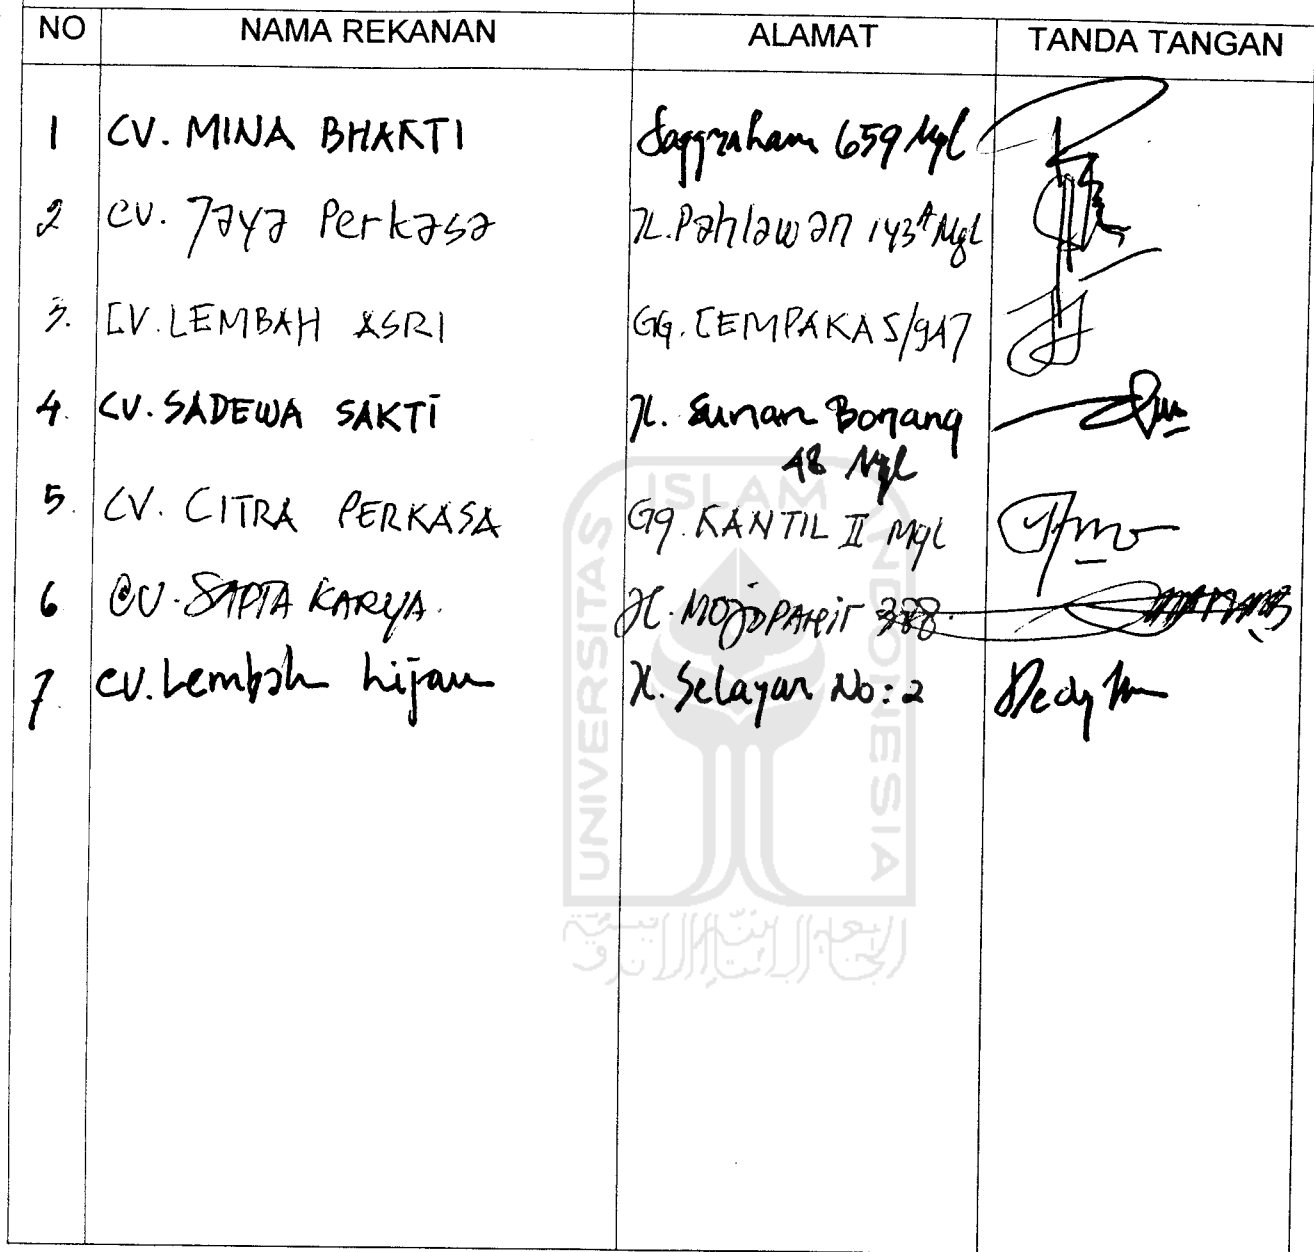 NO NAMA REKANAN ALAMAT TANDA TANGAN
1 CV. MINA BHAKTI 659 Mgl
2 CV. Jaya Perkasa Jl. Pahlawan 143A Mgl
3. CV. LEMBAH ASRI GG. CEMPAKA 5/947
4. CV. SADEWA SAKTI Jl. Sunan Bonang
48 Mgl
5. CV. CITRA PERKASA Gg. KANTIL II Mgl
6 CV. SAPTA KARYA. Jl. MOJOPAHIT 388.
7. CV. Lembah hijau Jl. Selayar No: 2
UNIVERSITAS ISLAM INDONESIA